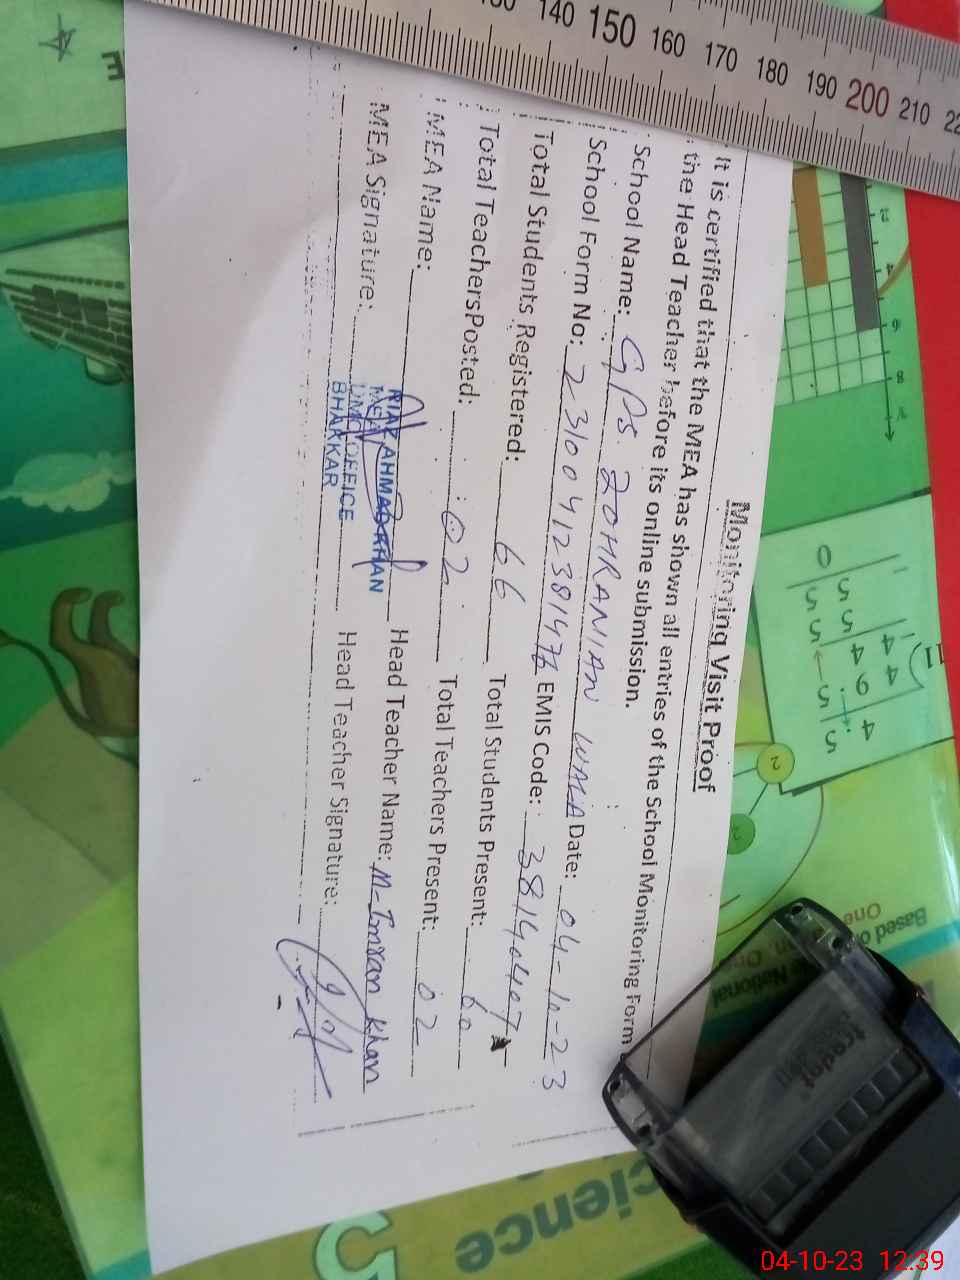 140 150 160 170 180 190 200 210
Monitoring Visit Proof
It is certified that the MEA has shown all entries of the School Monitoring Form
the Head Teacher before its online submission.
School Name: GPS ZOHRANIAN WALA Date: 04-10-23
School Form No: EMIS Code:
Total Students Registered: 66 Total Students Present: 60
Total TeachersPosted: 02 Total Teachers Present: 02
MEA Name: Head Teacher Name: M-Imran Khan
RIAZ AHMAD KHAN
MEA
OFFICE
BHAKKAR
MEA Signature: Head Teacher Signature:
trodat
Based on
One
National
cience
5
11)
04-10-23 12:39